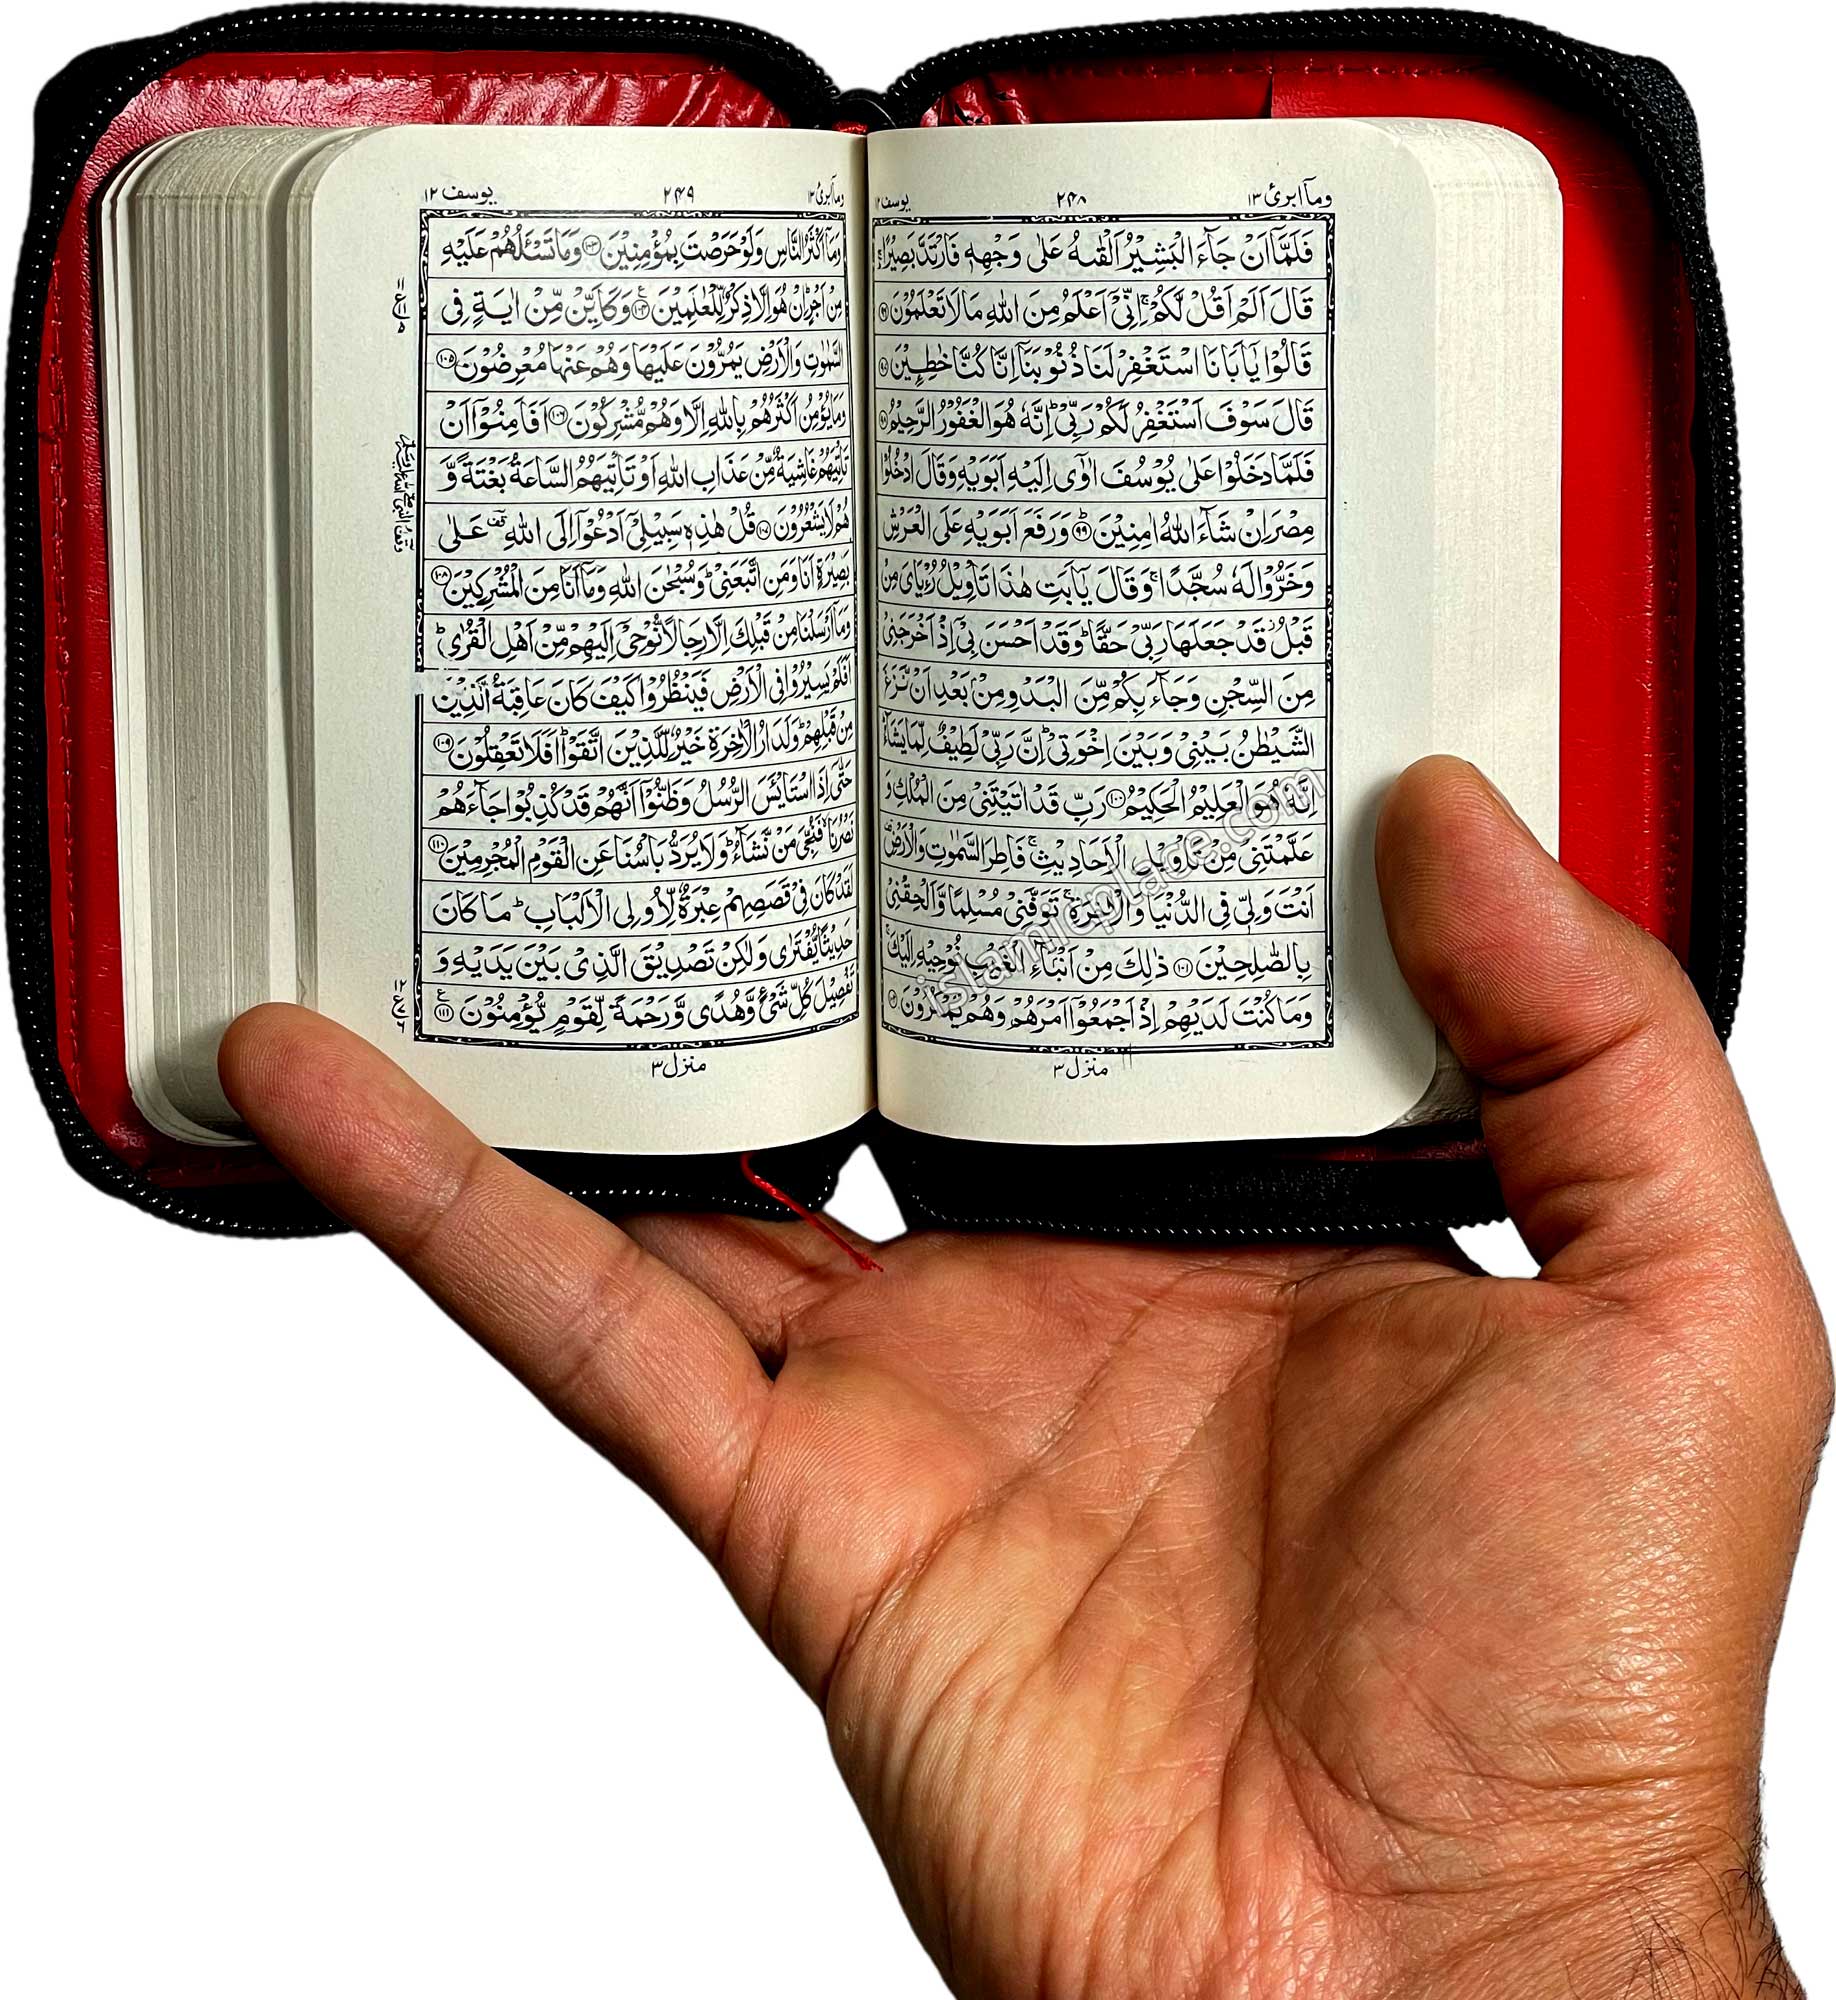 ومآ ابرئ ١٣
٢٤٨
يوسف ١٢
فَلَمَّاۤ اَنْ جَآءَ الْبَشِيْرُ اَلْقٰىهُ عَلٰى وَجْهِهٖ فَارْتَدَّ بَصِيْرًا ۚ
قَالَ اَلَمْ اَقُلْ لَّكُمْ ۚ اِنِّيْۤ اَعْلَمُ مِنَ اللّٰهِ مَا لَا تَعْلَمُوْنَ ﴿٩٦﴾
قَالُوْا يٰۤاَبَانَا اسْتَغْفِرْ لَنَا ذُنُوْبَنَاۤ اِنَّا كُنَّا خٰطِـِٕيْنَ ﴿٩٧﴾
قَالَ سَوْفَ اَسْتَغْفِرُ لَكُمْ رَبِّيْ ؕ اِنَّهٗ هُوَ الْغَفُوْرُ الرَّحِيْمُ ﴿٩٨﴾
فَلَمَّا دَخَلُوْا عَلٰى يُوْسُفَ اٰوٰۤى اِلَيْهِ اَبَوَيْهِ وَقَالَ ادْخُلُوْا
مِصْرَ اِنْ شَآءَ اللّٰهُ اٰمِنِيْنَ ﴿٩٩﴾ؕ وَرَفَعَ اَبَوَيْهِ عَلَى الْعَرْشِ
وَخَرُّوْا لَهٗ سُجَّدًا ۚ وَقَالَ يٰۤاَبَتِ هٰذَا تَاْوِيْلُ رُءْيَايَ مِنْ
قَبْلُ ؗ قَدْ جَعَلَهَا رَبِّيْ حَقًّا ؕ وَقَدْ اَحْسَنَ بِيْۤ اِذْ اَخْرَجَنِيْ
مِنَ السِّجْنِ وَجَآءَ بِكُمْ مِّنَ الْبَدْوِ مِنْۢ بَعْدِ اَنْ نَّزَغَ
الشَّيْطٰنُ بَيْنِيْ وَبَيْنَ اِخْوَتِيْ ؕ اِنَّ رَبِّيْ لَطِيْفٌ لِّمَا يَشَآءُ ؕ
اِنَّهٗ هُوَ الْعَلِيْمُ الْحَكِيْمُ ﴿١٠٠﴾ رَبِّ قَدْ اٰتَيْتَنِيْ مِنَ الْمُلْكِ وَ
عَلَّمْتَنِيْ مِنْ تَاْوِيْلِ الْاَحَادِيْثِ ۚ فَاطِرَ السَّمٰوٰتِ وَالْاَرْضِ ۫
اَنْتَ وَلِيّٖ فِي الدُّنْيَا وَالْاٰخِرَةِ ۚ تَوَفَّنِيْ مُسْلِمًا وَّاَلْحِقْنِيْ
بِالصّٰلِحِيْنَ ﴿١٠١﴾ ذٰلِكَ مِنْ اَنْۢبَآءِ الْغَيْبِ نُوْحِيْهِ اِلَيْكَ ۚ
وَمَا كُنْتَ لَدَيْهِمْ اِذْ اَجْمَعُوْۤا اَمْرَهُمْ وَهُمْ يَمْكُرُوْنَ ﴿١٠٢﴾
منزل ٣
islamicplace.com
ومآ ابرئ ١٣
٢٤٩
يوسف ١٢
وَمَاۤ اَكْثَرُ النَّاسِ وَلَوْ حَرَصْتَ بِمُؤْمِنِيْنَ ﴿١٠٣﴾ وَمَا تَسْـَٔلُهُمْ عَلَيْهِ
مِنْ اَجْرٍ ؕ اِنْ هُوَ اِلَّا ذِكْرٌ لِّلْعٰلَمِيْنَ ﴿١٠٤﴾ع وَكَاَيِّنْ مِّنْ اٰيَةٍ فِي
السَّمٰوٰتِ وَالْاَرْضِ يَمُرُّوْنَ عَلَيْهَا وَهُمْ عَنْهَا مُعْرِضُوْنَ ﴿١٠٥﴾
وَمَا يُؤْمِنُ اَكْثَرُهُمْ بِاللّٰهِ اِلَّا وَهُمْ مُّشْرِكُوْنَ ﴿١٠٦﴾ اَفَاَمِنُوْۤا اَنْ
تَاْتِيَهُمْ غَاشِيَةٌ مِّنْ عَذَابِ اللّٰهِ اَوْ تَاْتِيَهُمُ السَّاعَةُ بَغْتَةً وَّ
هُمْ لَا يَشْعُرُوْنَ ﴿١٠٧﴾ قُلْ هٰذِهٖ سَبِيْلِيْۤ اَدْعُوْۤا اِلَى اللّٰهِ ؔقف عَلٰى
بَصِيْرَةٍ اَنَا وَمَنِ اتَّبَعَنِيْ ؕ وَسُبْحٰنَ اللّٰهِ وَمَاۤ اَنَا مِنَ الْمُشْرِكِيْنَ ﴿١٠٨﴾
وَمَاۤ اَرْسَلْنَا مِنْ قَبْلِكَ اِلَّا رِجَالًا نُّوْحِيْۤ اِلَيْهِمْ مِّنْ اَهْلِ الْقُرٰى ؕ
اَفَلَمْ يَسِيْرُوْا فِي الْاَرْضِ فَيَنْظُرُوْا كَيْفَ كَانَ عَاقِبَةُ الَّذِيْنَ
مِنْ قَبْلِهِمْ ؕ وَلَدَارُ الْاٰخِرَةِ خَيْرٌ لِّلَّذِيْنَ اتَّقَوْا ؕ اَفَلَا تَعْقِلُوْنَ ﴿١٠٩﴾
حَتّٰۤى اِذَا اسْتَايْـَٔسَ الرُّسُلُ وَظَنُّوْۤا اَنَّهُمْ قَدْ كُذِبُوْا جَآءَهُمْ
نَصْرُنَا ۙ فَنُجِّيَ مَنْ نَّشَآءُ ؕ وَلَا يُرَدُّ بَاْسُنَا عَنِ الْقَوْمِ الْمُجْرِمِيْنَ ﴿١١٠﴾
لَقَدْ كَانَ فِيْ قَصَصِهِمْ عِبْرَةٌ لِّاُولِي الْاَلْبَابِ ؕ مَا كَانَ
حَدِيْثًا يُّفْتَرٰى وَلٰكِنْ تَصْدِيْقَ الَّذِيْ بَيْنَ يَدَيْهِ وَ
تَفْصِيْلَ كُلِّ شَيْءٍ وَّهُدًى وَّرَحْمَةً لِّقَوْمٍ يُّؤْمِنُوْنَ ﴿١١١﴾ع
منزل ٣